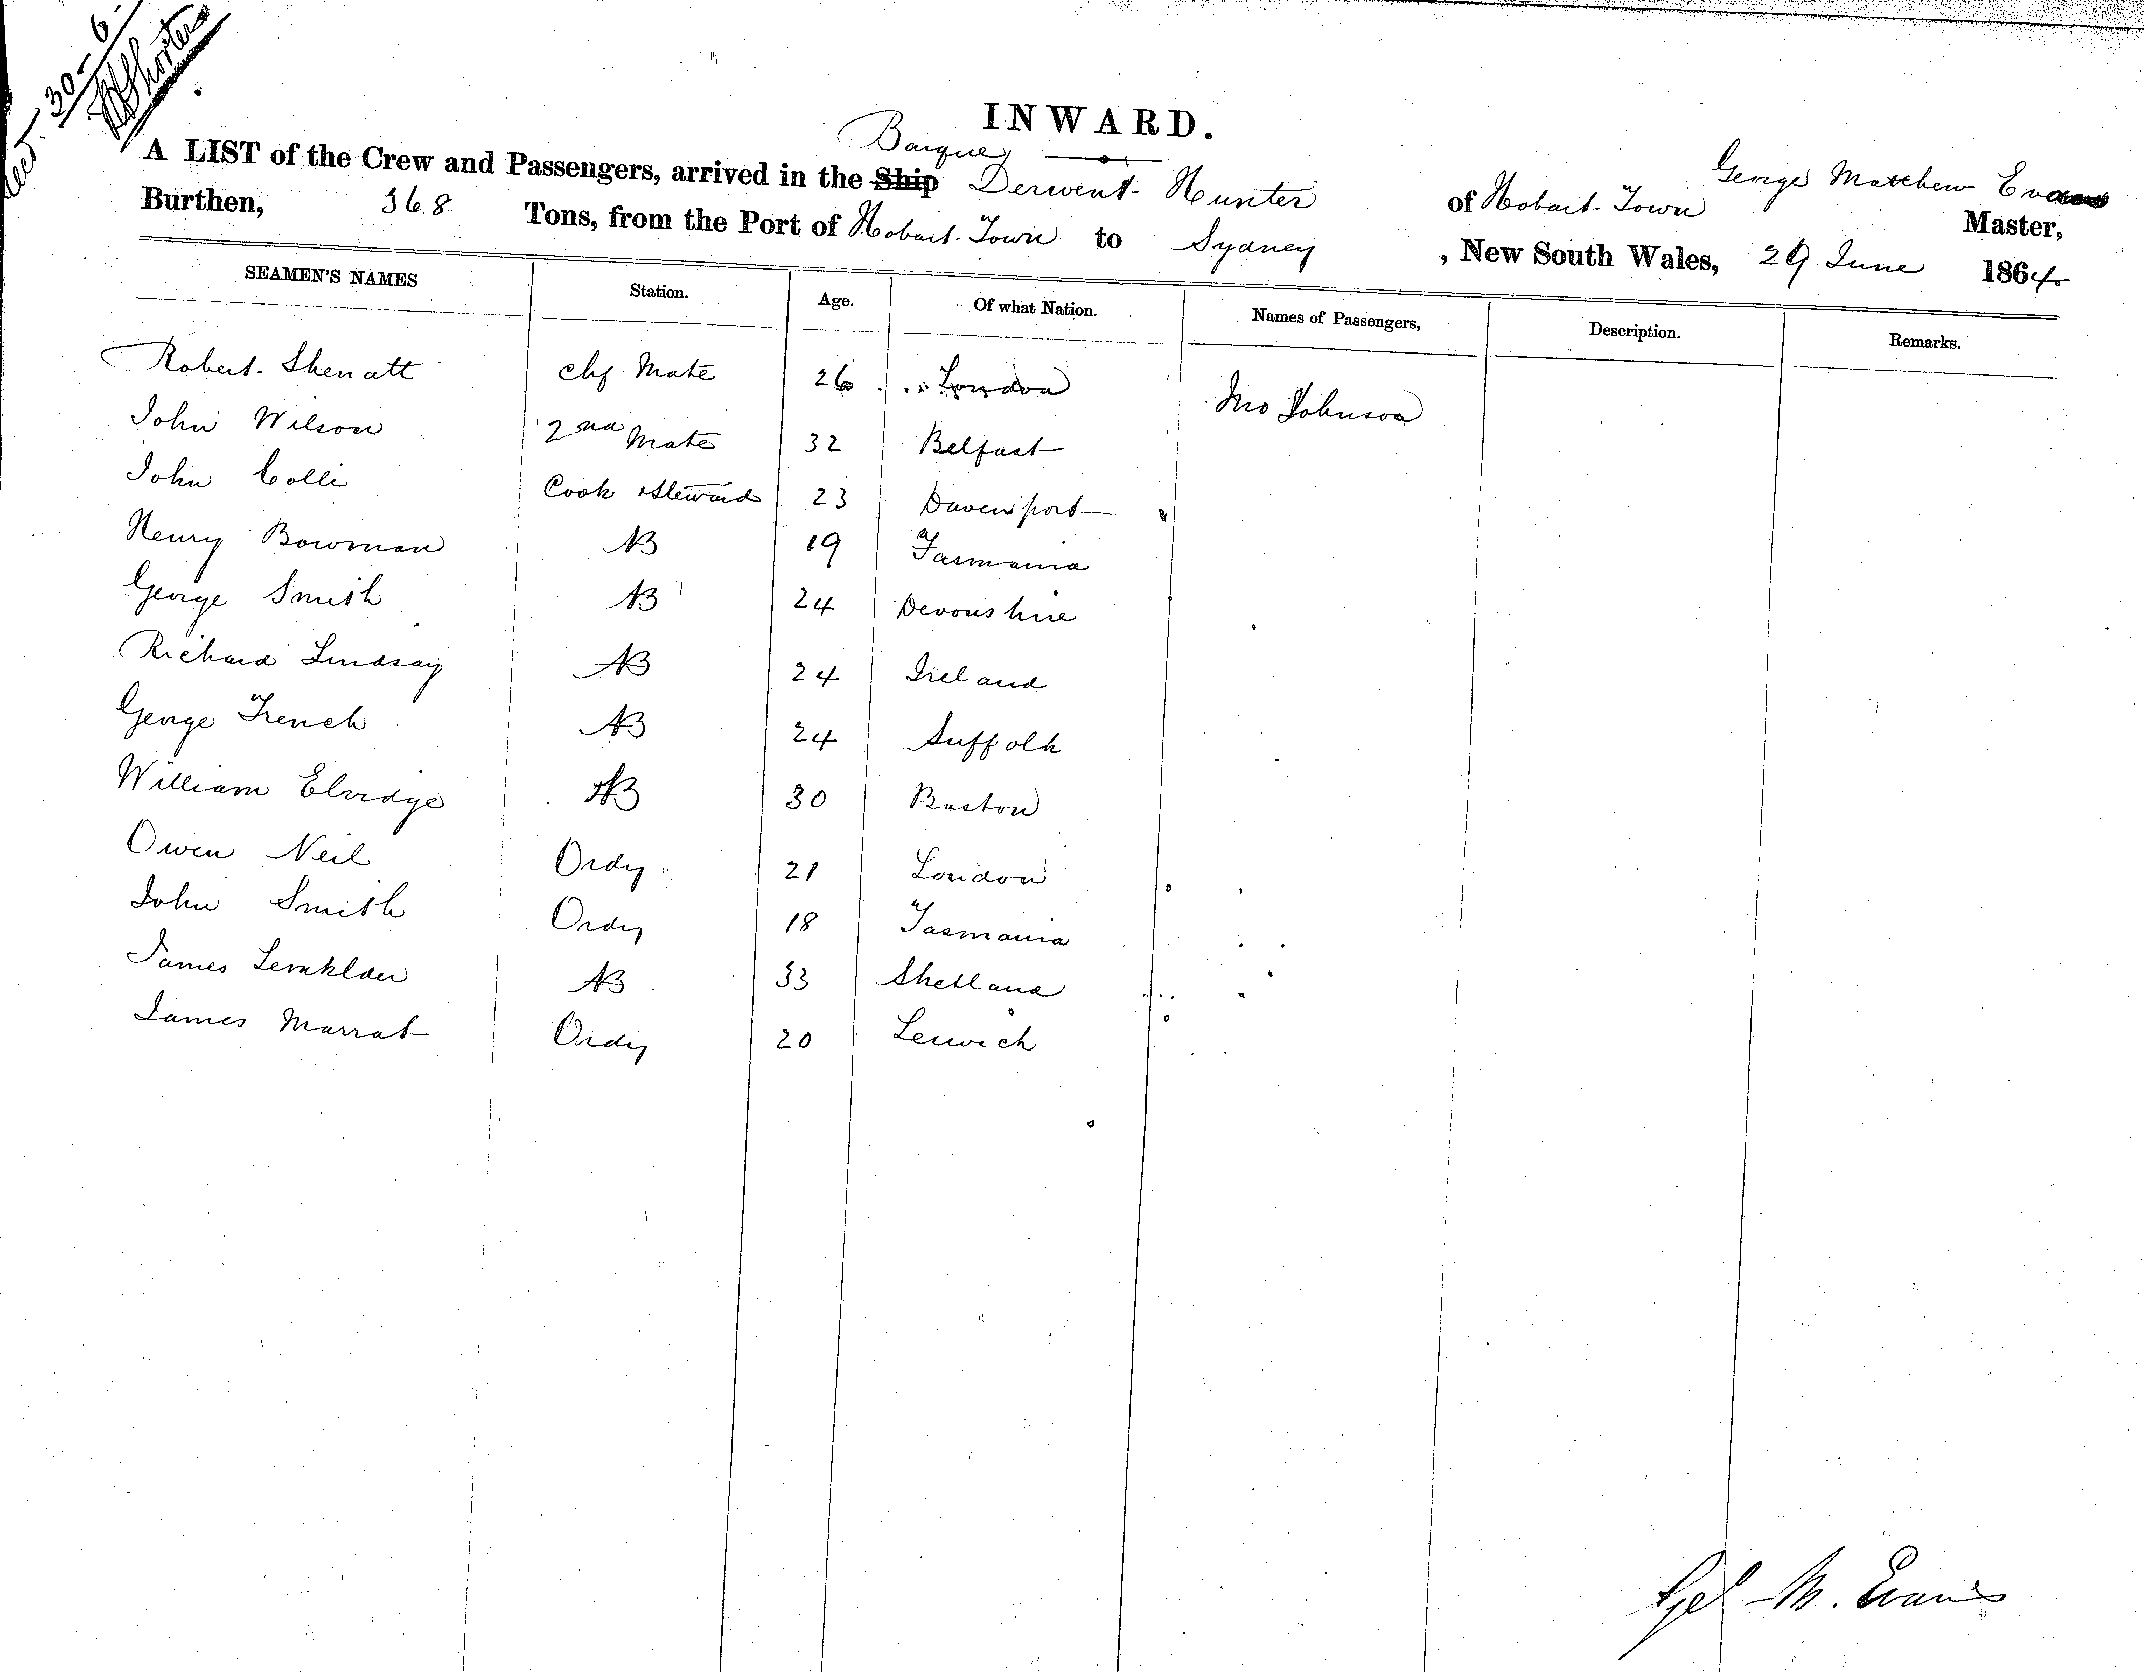 Recd 30-6-
INWARD.
Barque
A LIST of the Crew and Passengers, arrived in the Ship Derwent Hunter of Hobart Town George Matthew Evans Master,
Burthen, 368 Tons, from the Port of Hobart Town to Sydney, New South Wales, 29 June 1864
SEAMEN'S NAMES Station. Age. Of what Nation. Names of Passengers, Description. Remarks.
Robert Shenatt Chf Mate 26 London Jno Johnson
John Wilson 2nd Mate 32 Belfast
John Colli Cook & Steward 23 Davenport
Henry Bowman AB 19 Tasmania
George Smith AB 24 Devonshire
Richard Lindsay AB 24 Ireland
George French AB 24 Suffolk
William Elvidge AB 30 Boston
Owen Neil Ordy 21 London
John Smith Ordy 18 Tasmania
James AB 33 Shetland
James Marrat Ordy 20 Lerwich
Geo M. Evans